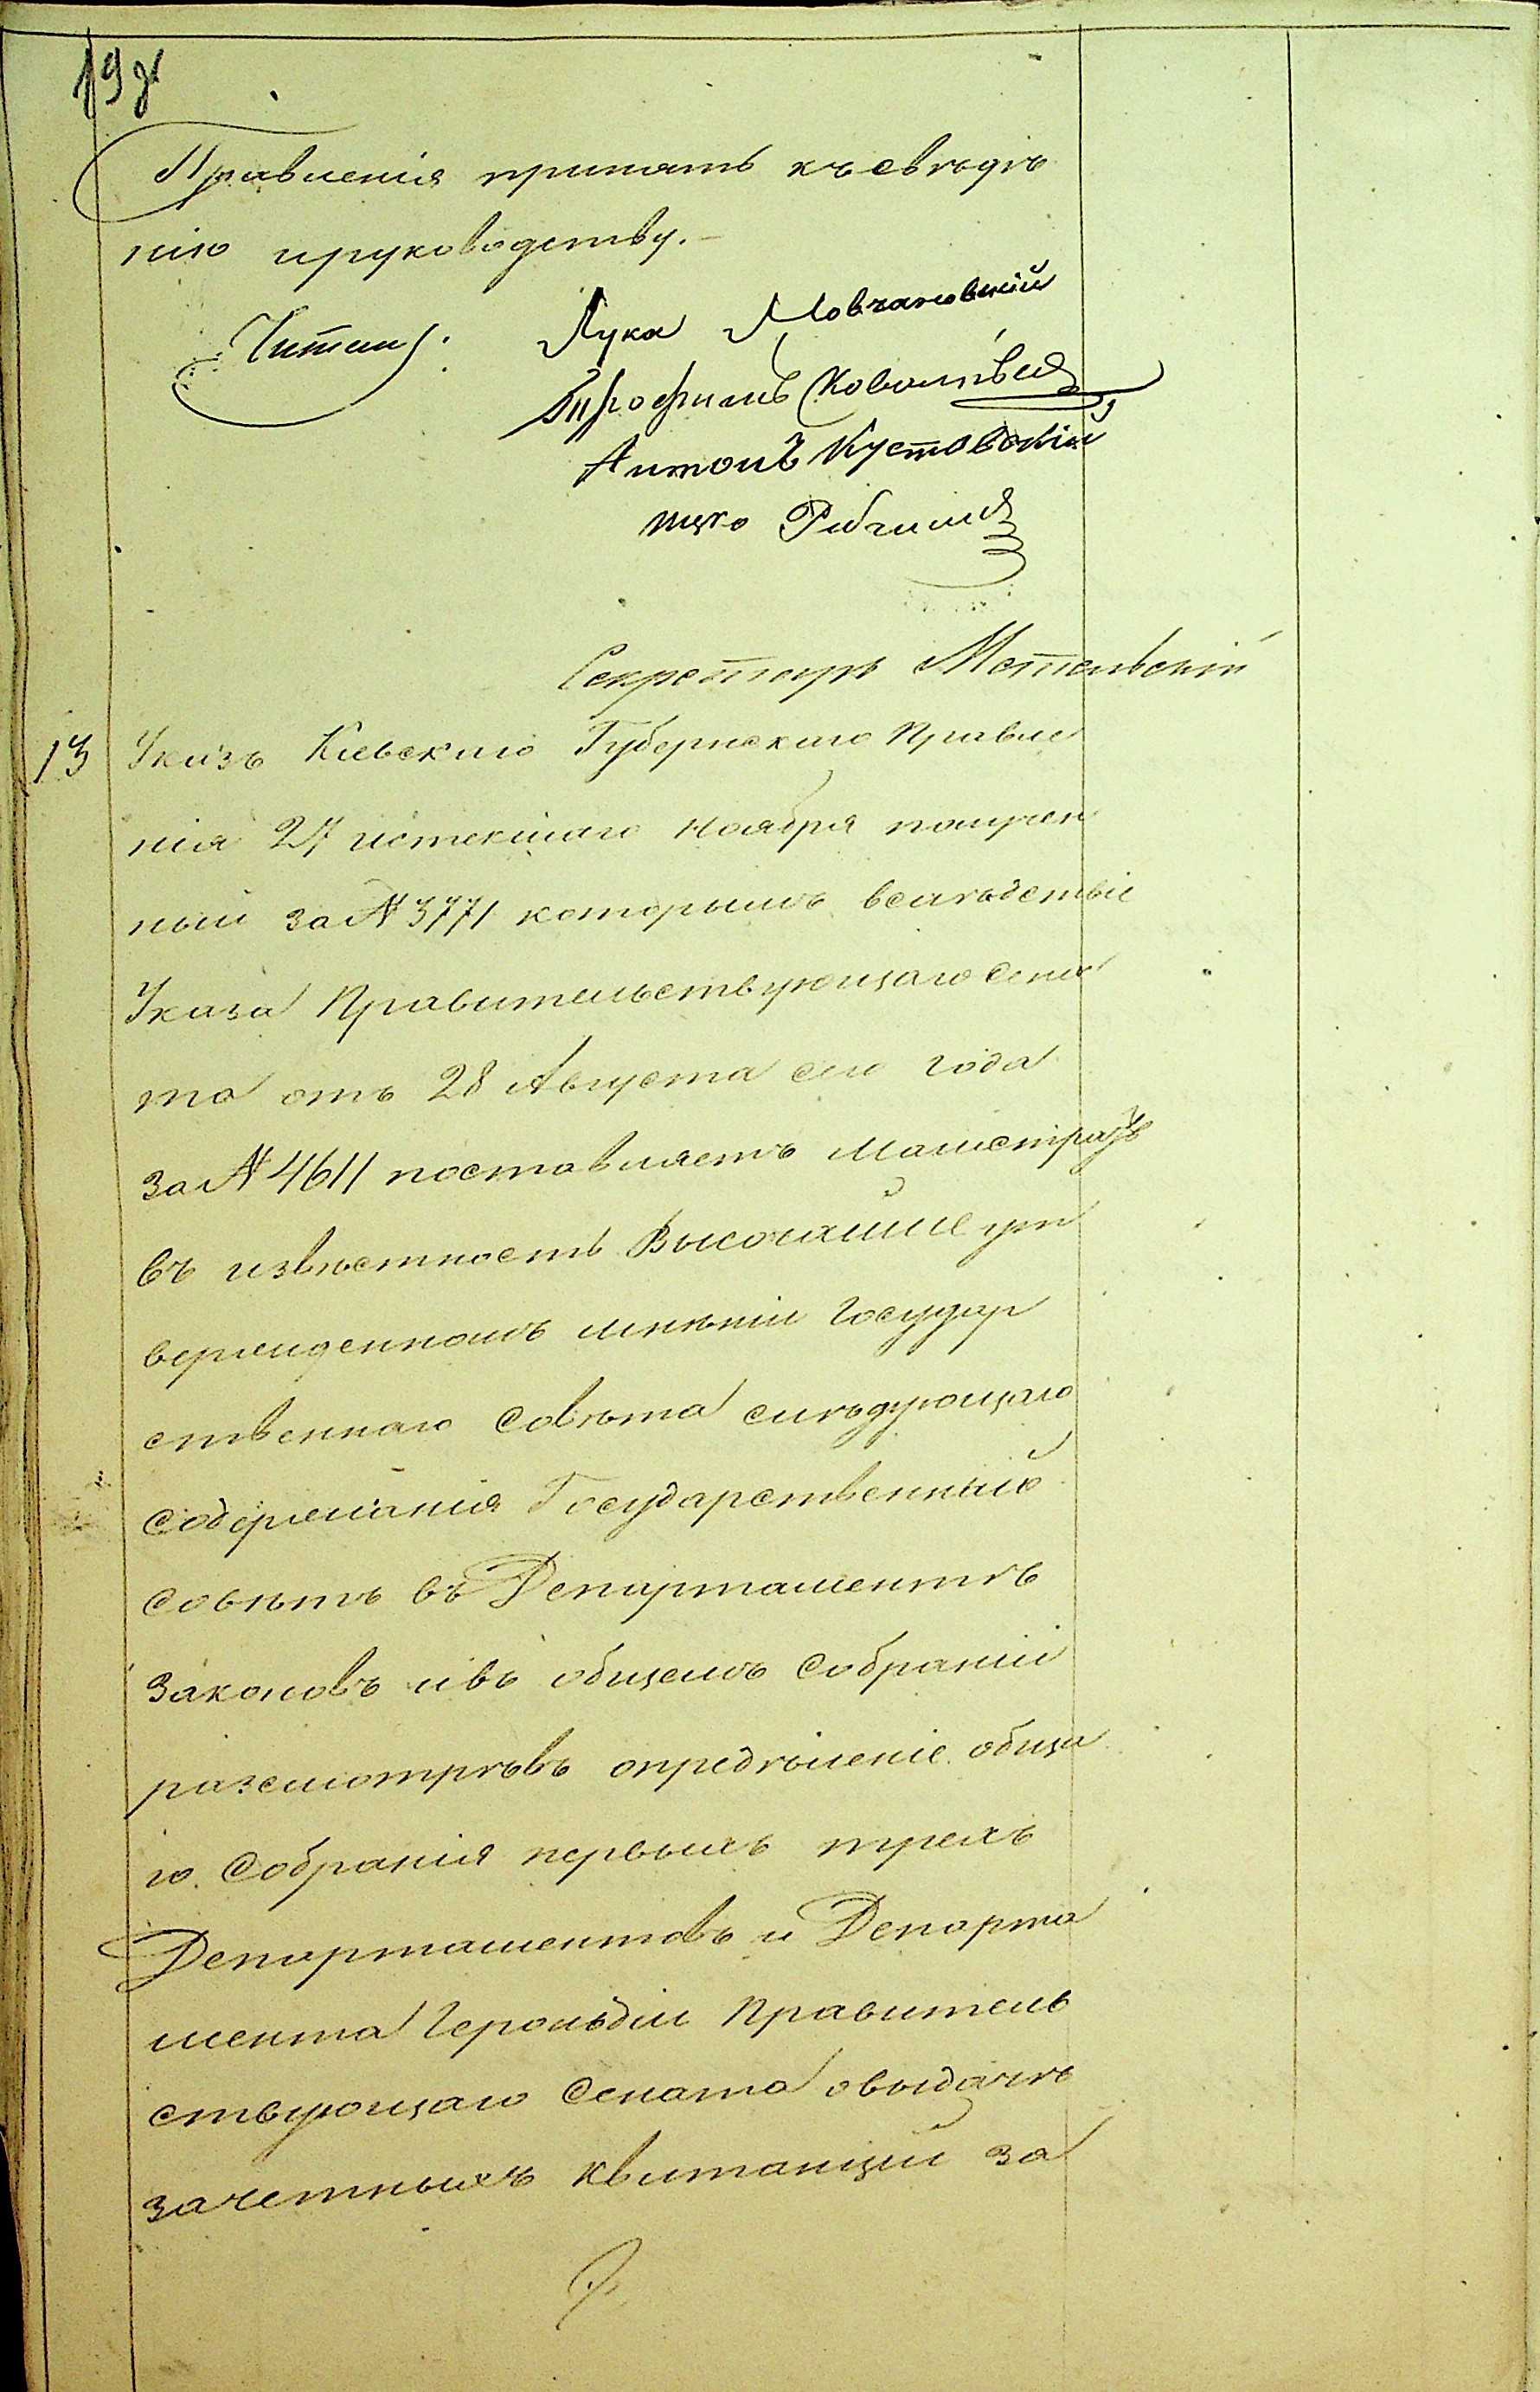 Правленія принять къ свѣдѣ
нію и руководству.
Читалъ:
Лука Мовчановскій
Трофимъ Ковалѣвъ
Антонъ Кустовскій
Секретарь Метельскій
13 Указъ Кіевскаго Губернскаго Правле
нія 27 истекшаго Ноября получен
ный за № 3771 которымъ вслѣдствіе
Указа Правительствующаго Сена
та отъ 28 Августа сего года
за № 4611 поставляетъ Магистратъ
въ извѣстность Высочайше ут
вержденномъ мнѣніи Государ
ственнаго Совѣта слѣдующаго
содержанія Государственный
совѣтъ въ Департаментѣ
Законовъ и въ общемъ Собраніи
разсмотрѣвъ опредѣленіе обща
го Собранія первыхъ трехъ
Департаментовъ и Департа
мента Герольдіи Правитель
ствующаго Сената о выдачѣ
зачетныхъ квитанцій за